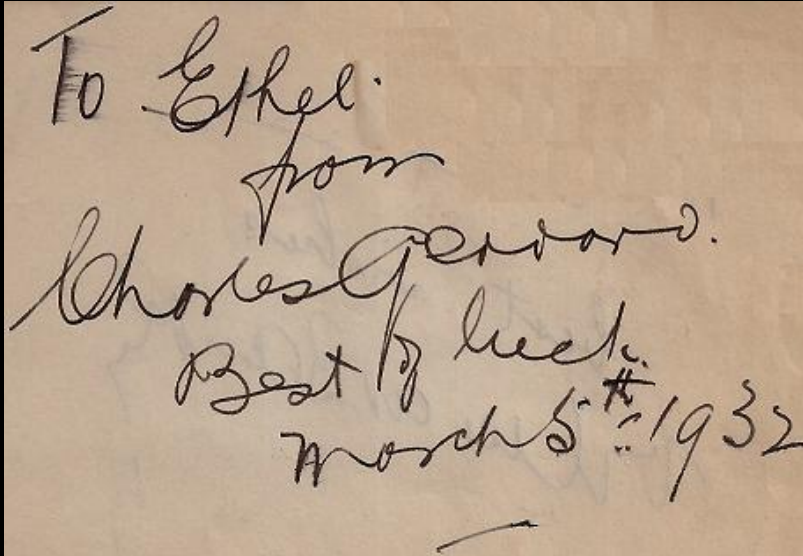 To Ethel.
from
Charles Gerrard.
Best of luck.
March 5th 1932